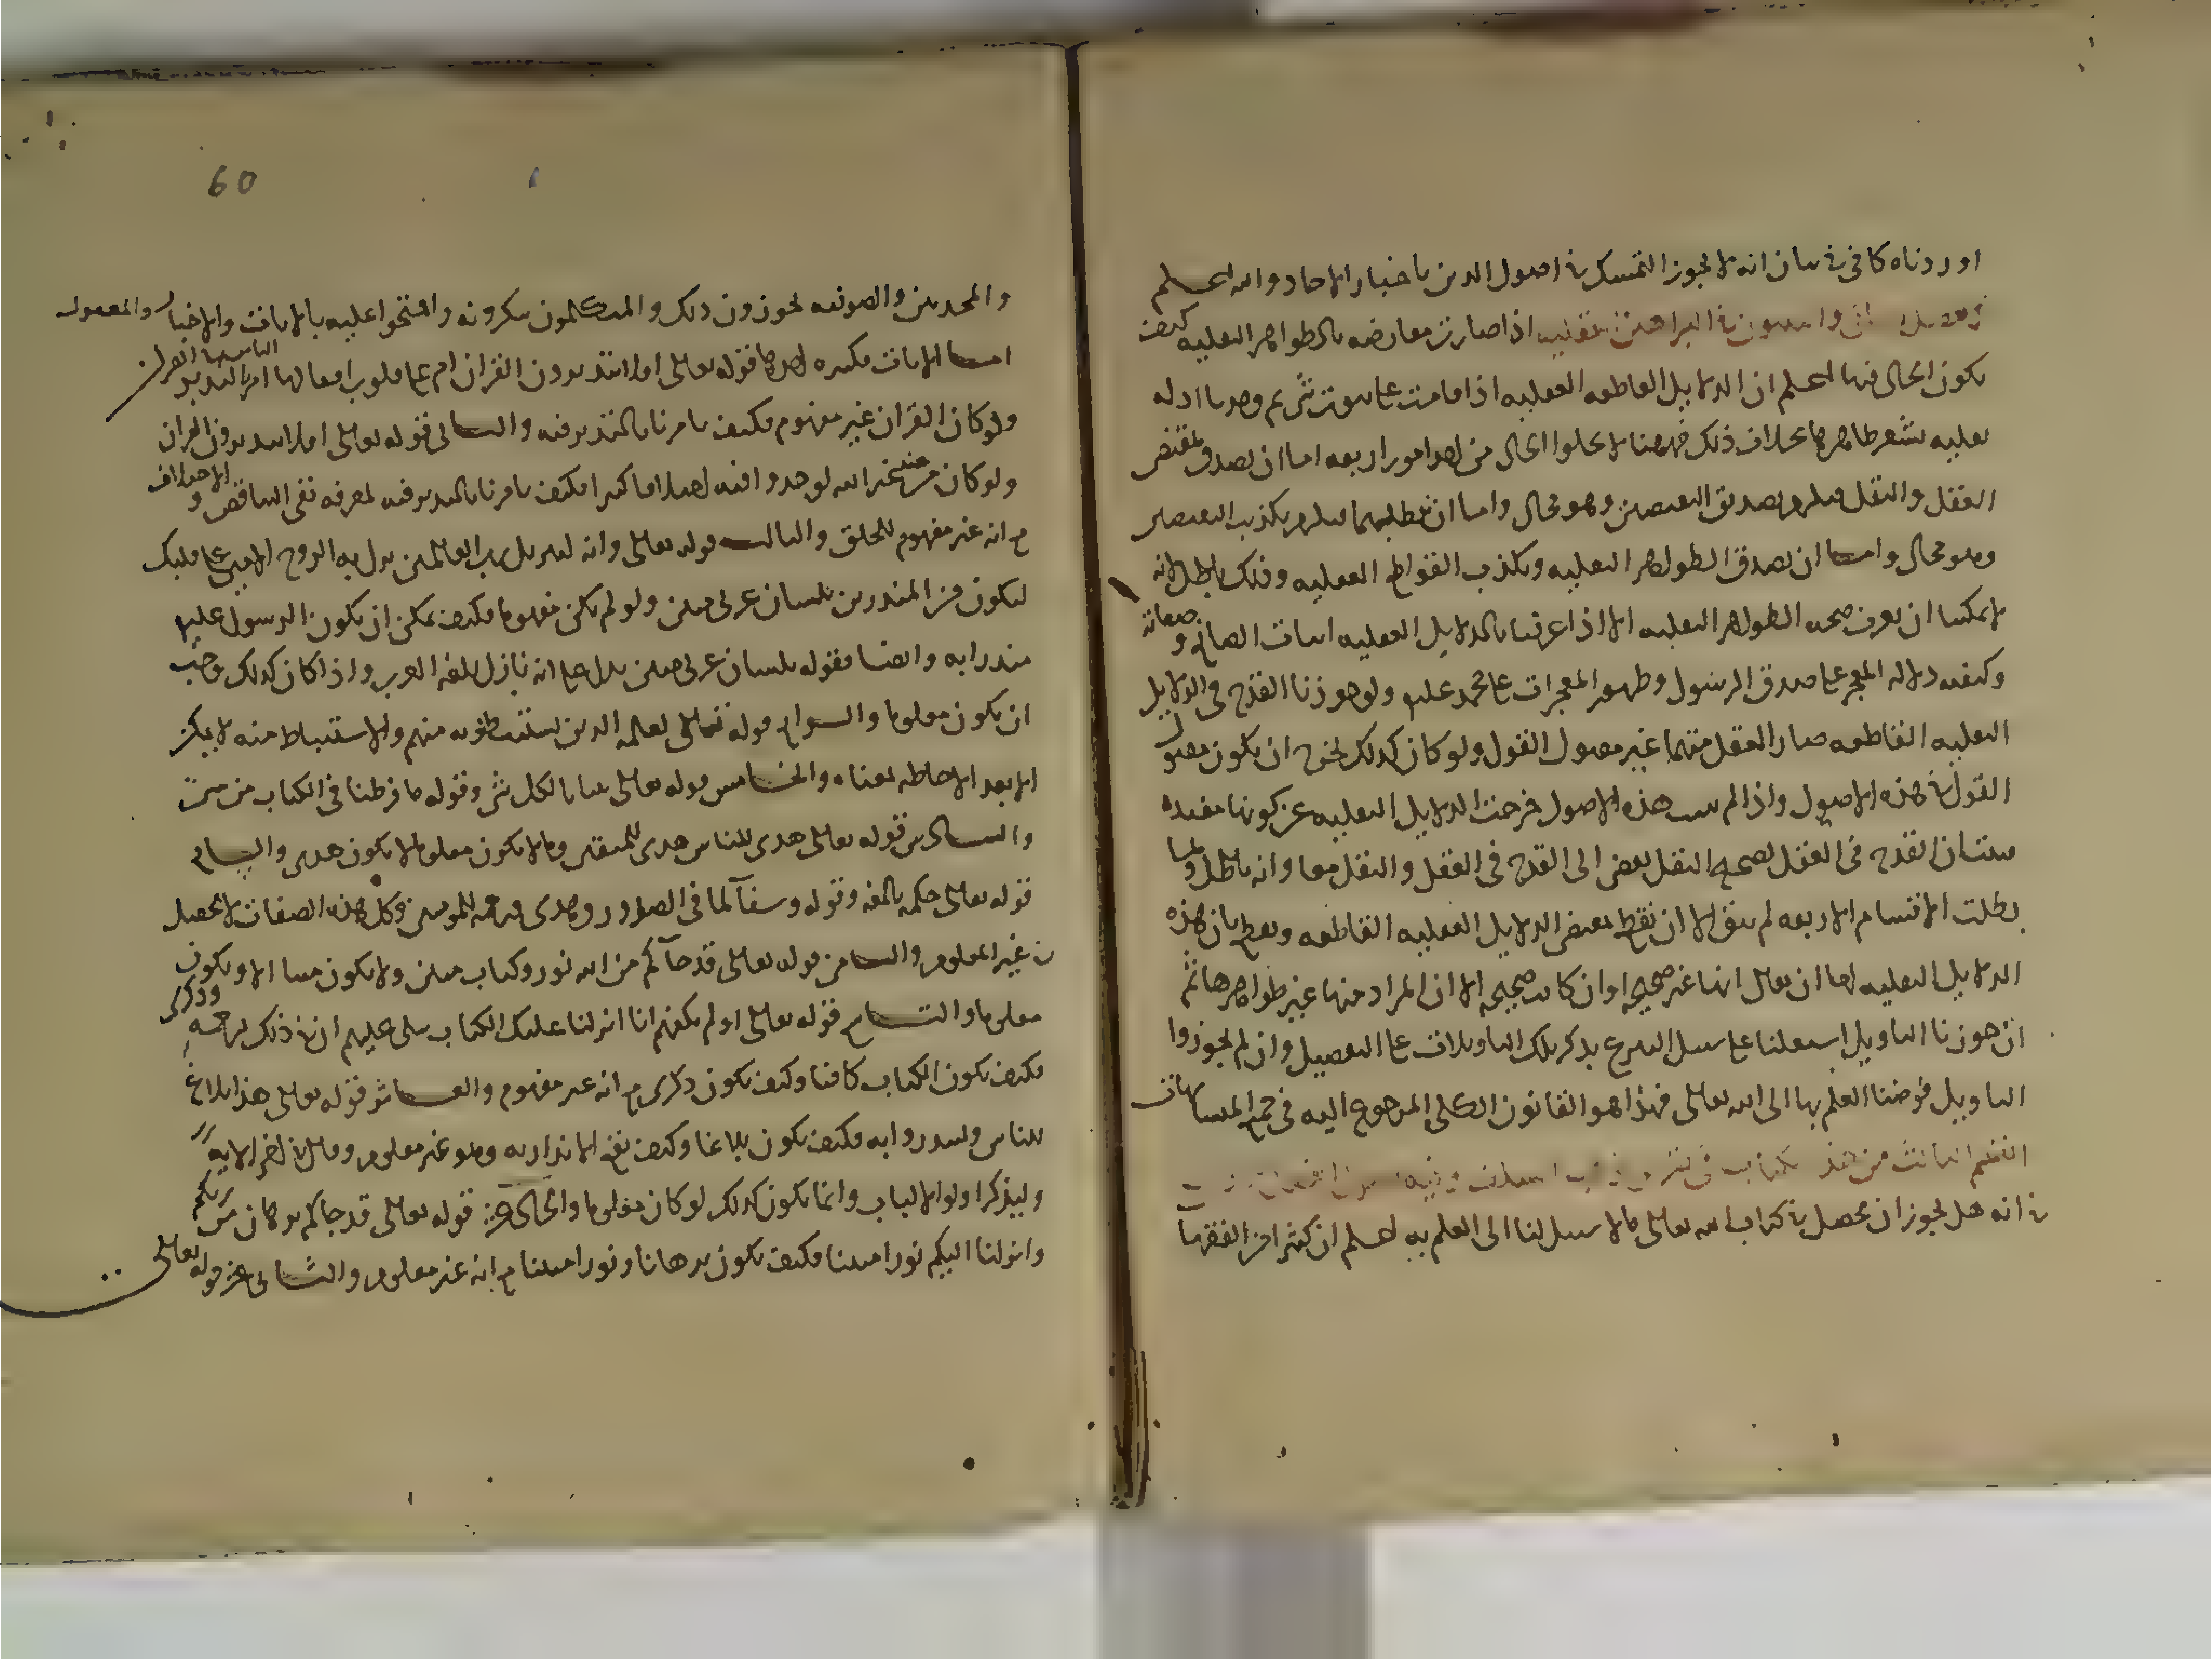 اوردناه كافى فى بيان انه لا يجوز التمسك فى اصول الدين باخبار الاحاد والله اعلم
الفصل الثانى والثلاثون فى البراهين العقليه اذا صارت معارضه بالظواهر النقليه كيف
يكون الحال فيها اعلم ان الدلايل القاطعه العقليه اذا قامت على ثبوت شى ثم وجدنا ادله
نقليه يشعر ظاهرها بخلاف ذلك فههنا لا يخلوا الحال من احد امور اربعه اما ان يصدق مقتضى
العقل والنقل فيلزم تصديق النقيضين وهو محال واما ان نبطلهما فيلزم تكذيب النقيضين
وهو محال واما ان يصدق الظواهر النقليه ويكذب القواطع العقليه وذلك باطل لانه
لا يمكننا ان نعرف صحه الظواهر النقليه الا اذا عرفنا بالدلايل العقليه اثبات الصانع وصفاته
وكيفيه دلاله المعجز على صدق الرسول وظهور المعجزات على محمد عليه ولو جوزنا القدح فى الدلايل
العقليه القاطعه صار العقل متهما غير مقبول القول ولو كان كذلك لخرج ان يكون مقبول
القول فى هذه الاصول واذا لم تثبت هذه الاصول خرجت الدلايل النقليه عن كونها مفيده
فثبت ان القدح فى العقل لتصحيح النقل يفضى الى القدح فى العقل والنقل معا وانه باطل ولما
بطلت الاقسام الاربعه لم يبق الا ان نقطع بمقتضى الدلايل العقليه القاطعه ونقطع بان هذه
الدلايل النقليه اما ان يقال انها غير صحيحه او ان كانت صحيحه الا ان المراد منها غير ظواهرها ثم
ان جوزنا التاويل اشتغلنا على سبيل التبرع بذكر تلك التاويلات على التفصيل وان لم يجوزوا
التاويل فوضنا العلم بها الى الله تعالى فهذا هو القانون الكلى المرجوع اليه فى جميع المتشابهات
القسم الثالث من هذا الكتاب فى تقرير مذهب السلف وفيه فصول الفصل الاول
فى انه هل يجوز ان يحصل فى كتاب الله تعالى ما لا سبيل لنا الى العلم به اعلم ان كثيرا من الفقها
60
والمحدثين والصوفيه يجوزون ذلك والمتكلمون ينكرونه واحتجوا عليه بالايات والاخبار والمعقول
اما الايات فكثيره احدها قوله تعالى افلا يتدبرون القران ام على قلوب اقفالها امر الناس بالتدبر فى القران
ولو كان القران غير مفهوم فكيف يامرنا بالتدبر فيه والثانى قوله تعالى افلا يتدبرون القران
ولو كان من عند غير الله لوجدوا فيه اختلافا كثيرا فكيف يامرنا بالتدبر فيه لمعرفه نفى التناقض والاختلاف
مع انه غير مفهوم للخلق والثالث قوله تعالى وانه لتنزيل رب العالمين نزل به الروح الامين على قلبك
لتكون من المنذرين بلسان عربى مبين ولو لم يكن مفهوما فكيف يمكن ان يكون الرسول عليه
منذرا به وايضا فقوله بلسان عربى مبين يدل على انه نازل بلغه العرب واذا كان كذلك وجب
ان يكون معلوما والرابع قوله تعالى لعلمه الذين يستنبطونه منهم والاستنباط منه لا يمكن
الا بعد الاحاطه بمعناه والخامس قوله تعالى تبيانا لكل شى وقوله ما فرطنا فى الكتاب من شى
والسادس قوله تعالى هدى للناس هدى للمتقين وما لا يكون معلوما لا يكون هدى والسابع
قوله تعالى حكمه بالغه وقوله وشفآ لما فى الصدور وهدى ورحمه للمومنين وكل هذه الصفات لا يحصل
فى غير المعلوم والثامن قوله تعالى قد جآكم من الله نور وكتاب مبين ولا يكون مبينا الا ويكون
معلوما والتاسع قوله تعالى اولم يكفهم انا انزلنا عليك الكتاب يتلى عليهم ان فى ذلك لرحمه وذكرى
فكيف يكون الكتاب كافيا وكيف يكون ذكرى مع انه غير مفهوم والعاشر قوله تعالى هذا بلاغ
للناس ولينذروا به فكيف يكون بلاغا وكيف يقع الانذار به وهو غير معلوم وقال فى اخر الايه
وليذكر اولوا الالباب وانما يكون كذلك لو كان معلوما والحادى عشر قوله تعالى قد جاكم برهان من ربكم
وانزلنا اليكم نورا مبينا فكيف يكون برهانا ونورا مبينا مع انه غير معلوم والثانى عشر قوله تعالى